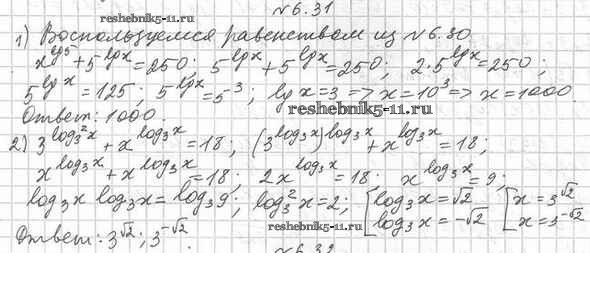 №6.31
reshebnik5-11.ru
1) Воспользуемся равенством из №6.30
x^{lg5} + 5^{lgx} = 250; 5^{lgx} + 5^{lgx} = 250; 2·5^{lgx} = 250;
5^{lgx} = 125; 5^{lgx} = 5^{-3}; lgx = 3 => x = 10^3 => x = 1000.
reshebnik5-11.ru
Ответ: 1000.
2) 3^{log_3^2 x} + x^{log_3 x} = 18; (3^{log_3 x})^{log_3 x} + x^{log_3 x} = 18;
x^{log_3 x} + x^{log_3 x} = 18; 2x^{log_3 x} = 18; x^{log_3 x} = 9;
log_3 x log_3 x = log_3 9; log_3^2 x = 2; [log_3 x = √2 [x = 3^{√2}
log_3 x = -√2 x = 3^{-√2}
Ответ: 3^{√2}; 3^{-√2}
reshebnik5-11.ru
№6.32